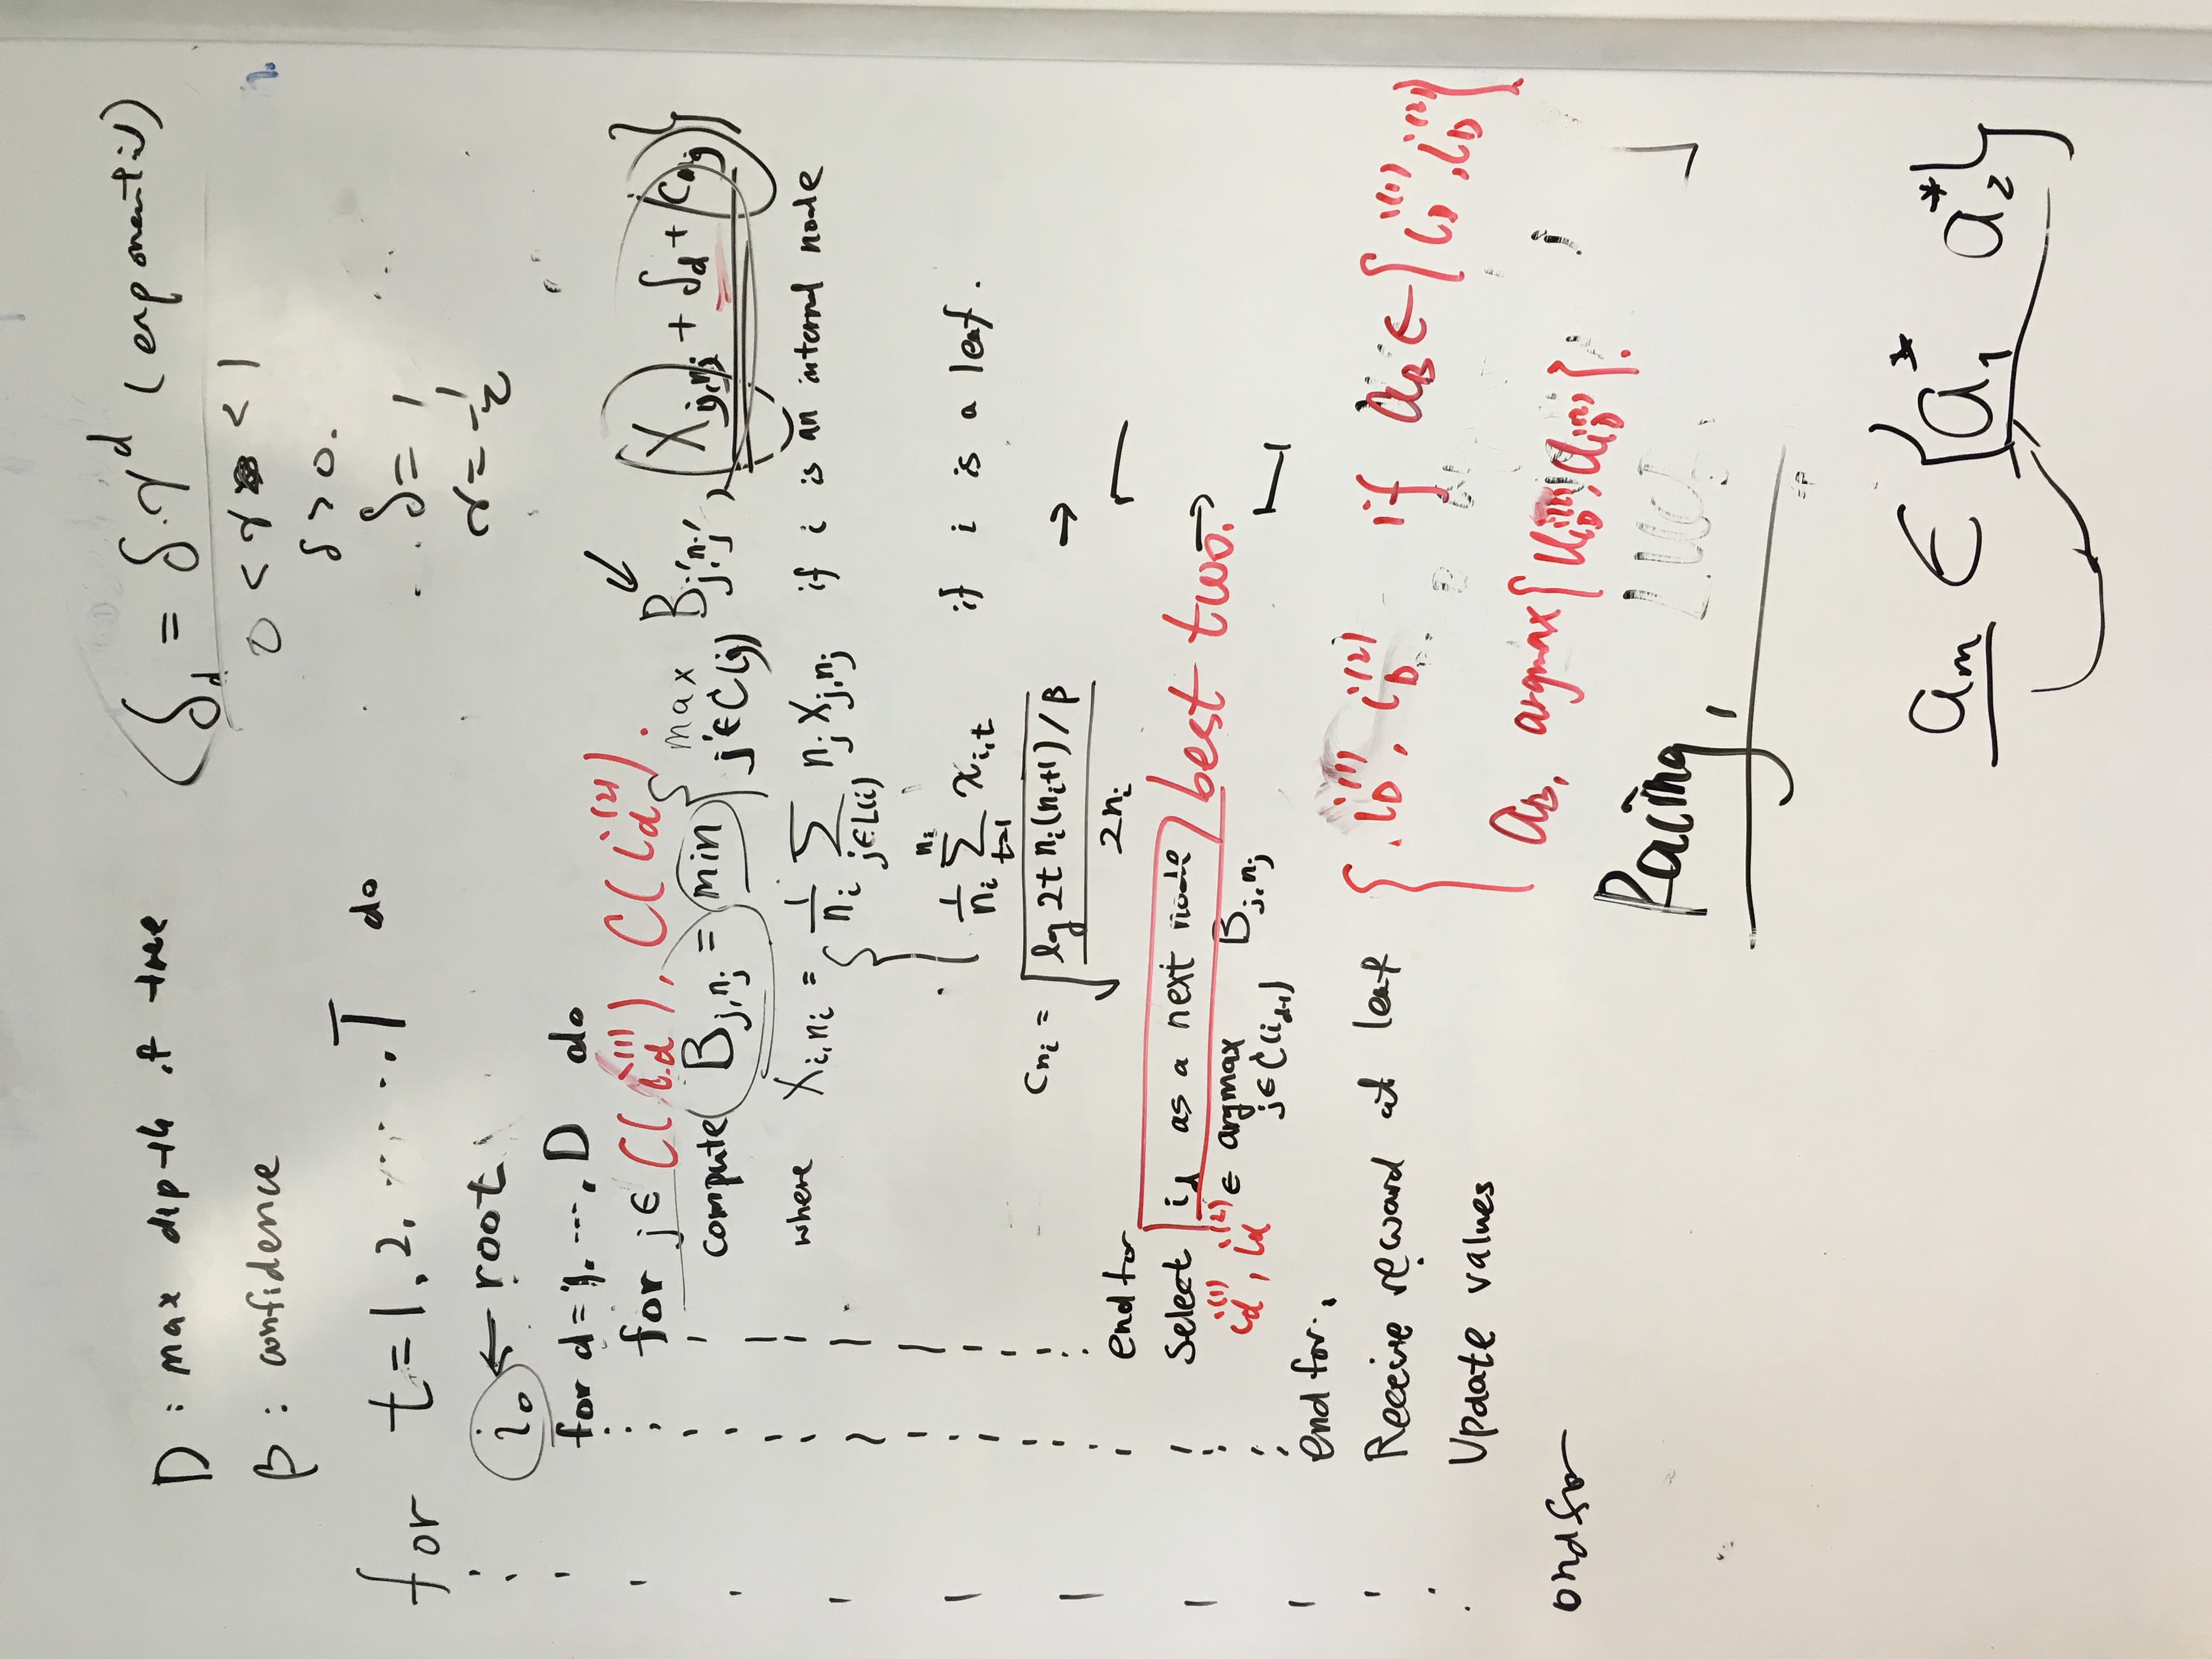 D : max depth of tree
δ_d = δ·γ^d (exponential)
β : confidence
0 < γ < 1
δ > 0.
for t = 1, 2, ....., T do
δ = 1
γ = 1/2
i_0 ← root
for d = 1, ..., D do
for j ∈ C(i_d^(1)), C(i_d^(2)).
compute B_{j,n_j} = min { max_{j'∈C(j)} B_{j',n_j'}, X_{j,n_j} + δ_d + C_{n_j} }
where X_{i,n_i} = { 1/n_i Σ_{j∈L(i)} n_j X_{j,n_j} if i is an internal node
1/n_i Σ_{t=1}^{n_i} x_{i,t} if i is a leaf.
C_{n_i} = √( lg 2t n_i(n_i+1)/β / 2n_i ) →
end for
Select i_d as a next node best two. →
i_d^(1), i_d^(2) ∈ argmax_{j∈C(i_{d-1})} B_{j,n_j}
end for.
Receive reward at leaf { i_D^(1), i_D^(2) if a_B ∈ { i_D^(1), i_D^(2) }
Update values
a_B, argmax { U_{i_D^(1)}, U_{i_D^(2)} }.
endfor
Racing, LUCB.
a_m ∈ { a_1^* a_2^* }